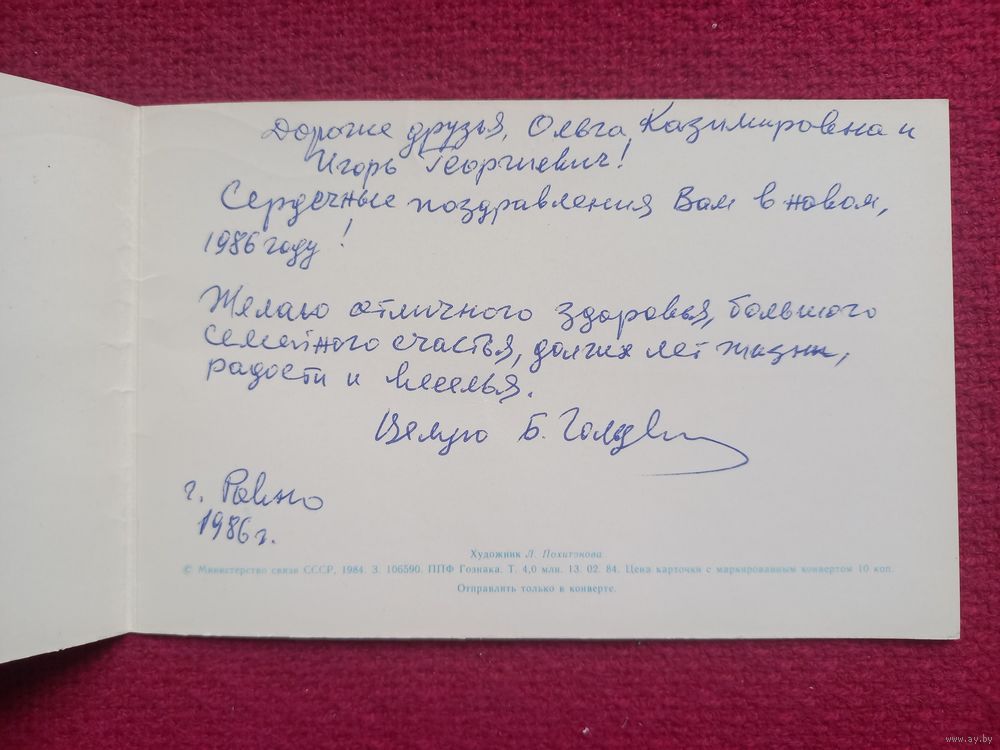 Дорогие друзья, Ольга Казимировна и
Игорь Георгиевич!
Сердечные поздравления Вам в новом,
1986 году!
Желаю отличного здоровья, большого
семейного счастья, долгих лет жизни,
радости и веселья.
Целую Б.
г. Ровно
1986 г.
Художник Л. Похитонова.
© Министерство связи СССР, 1984. З. 106590. ППФ Гознака. Т. 4,0 млн. 13. 02. 84. Цена карточки с маркированным конвертом 10 коп.
Отправлять только в конверте.
www.ay.by